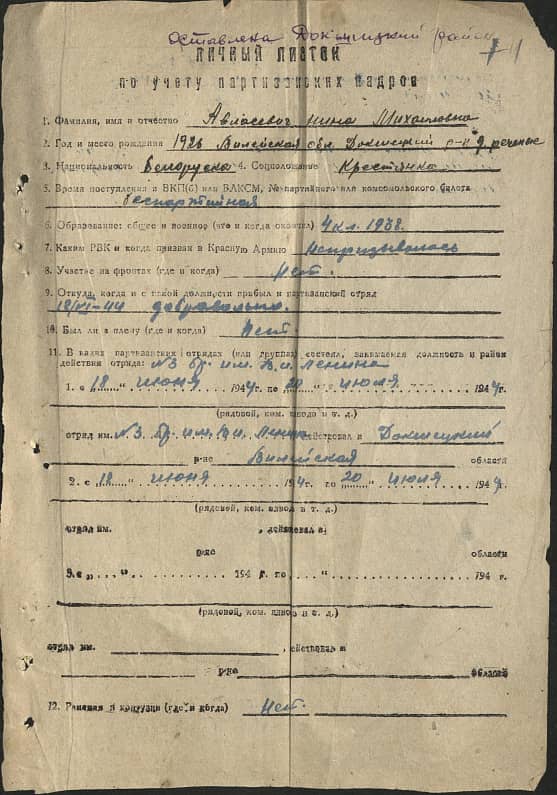 Оставлена Докшицкий район
ЛИЧНЫЙ ЛИСТОК
по учету партизанских кадров
1. Фамилия, имя и отчество Авласевич Нина Михайловна
2. Год и место рождения 1926 Вилейская обл. Докшицкий р-н д.
3. Национальность Белоруска 4. Соцположение Крестянка
5. Время поступления в ВКП(б) или ВЛКСМ, № партийного или комсомольского билета
беспартийная
6. Образование: общее и военное (что и когда окончил) 4 кл. 1938.
7. Каким РВК и когда призван в Красную Армию Непризывалась
8. Участие на фронтах (где и когда) Нет.
9. Откуда, когда и с какой должности прибыл в партизанский отряд
18/VI-44 добравольно.
10. Был ли в плену (где и когда) Нет.
11. В каких партизанских отрядах (или группах) состоял, занимаемая должность и район
действия отряда: №3 бр. им. В.И. Ленина
1. с "18" июня 1944г. по "20" июля 1944г.
(рядовой, ком. взвода и т. д.)
отряд им. №3 бр. им. В.И. Ленин действовал в Докшицкий
р-не Вилейская области
2. с "18" июня 1944г. по "20" июля 1944г.
(рядовой, ком. взвода и т. д.)
отряд им. , действовал в
р-не области
3. с " " 194 г. по " " 194 г.
(рядовой, ком. взвода и т. д.)
отряд им. , действовал в
р-не области
12. Ранения и контузии (где и когда) Нет.